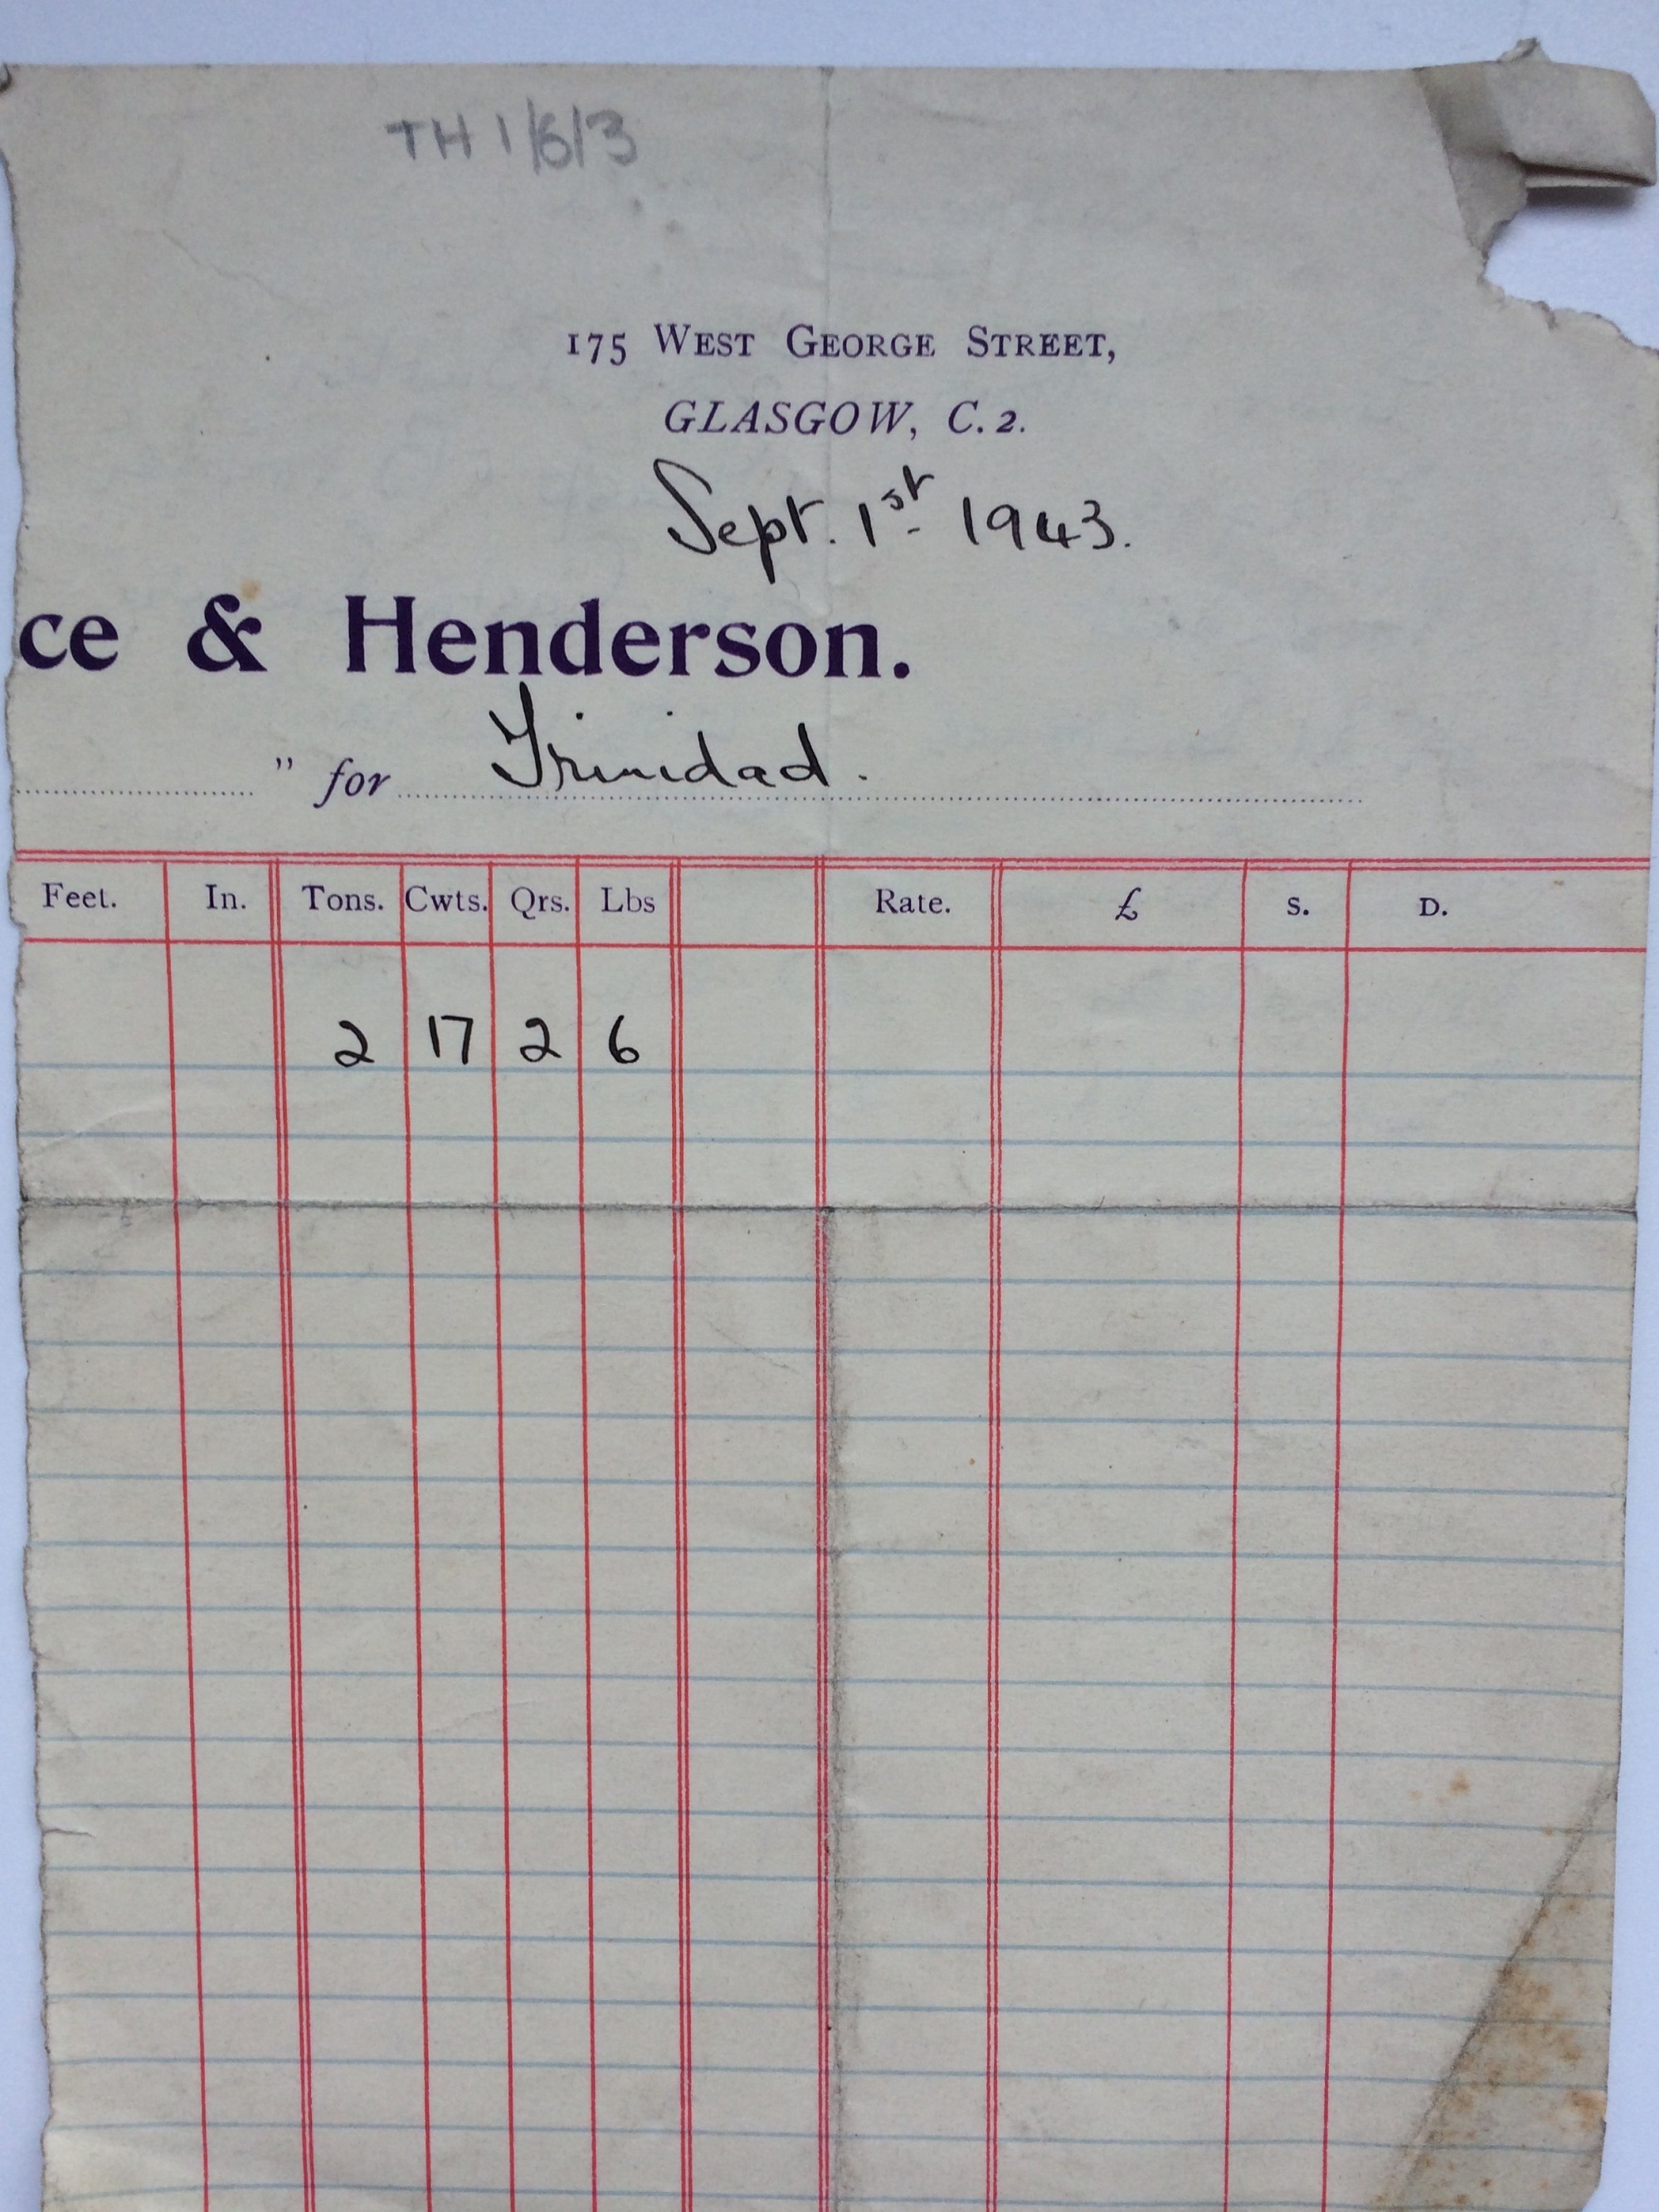 TH 1/6/3
175 WEST GEORGE STREET,
GLASGOW, C.2.
Sept. 1st 1943.
ce & Henderson.
" for Trinidad.
Feet. In. Tons. Cwts. Qrs. Lbs Rate. £ S. D.
2 17 2 6